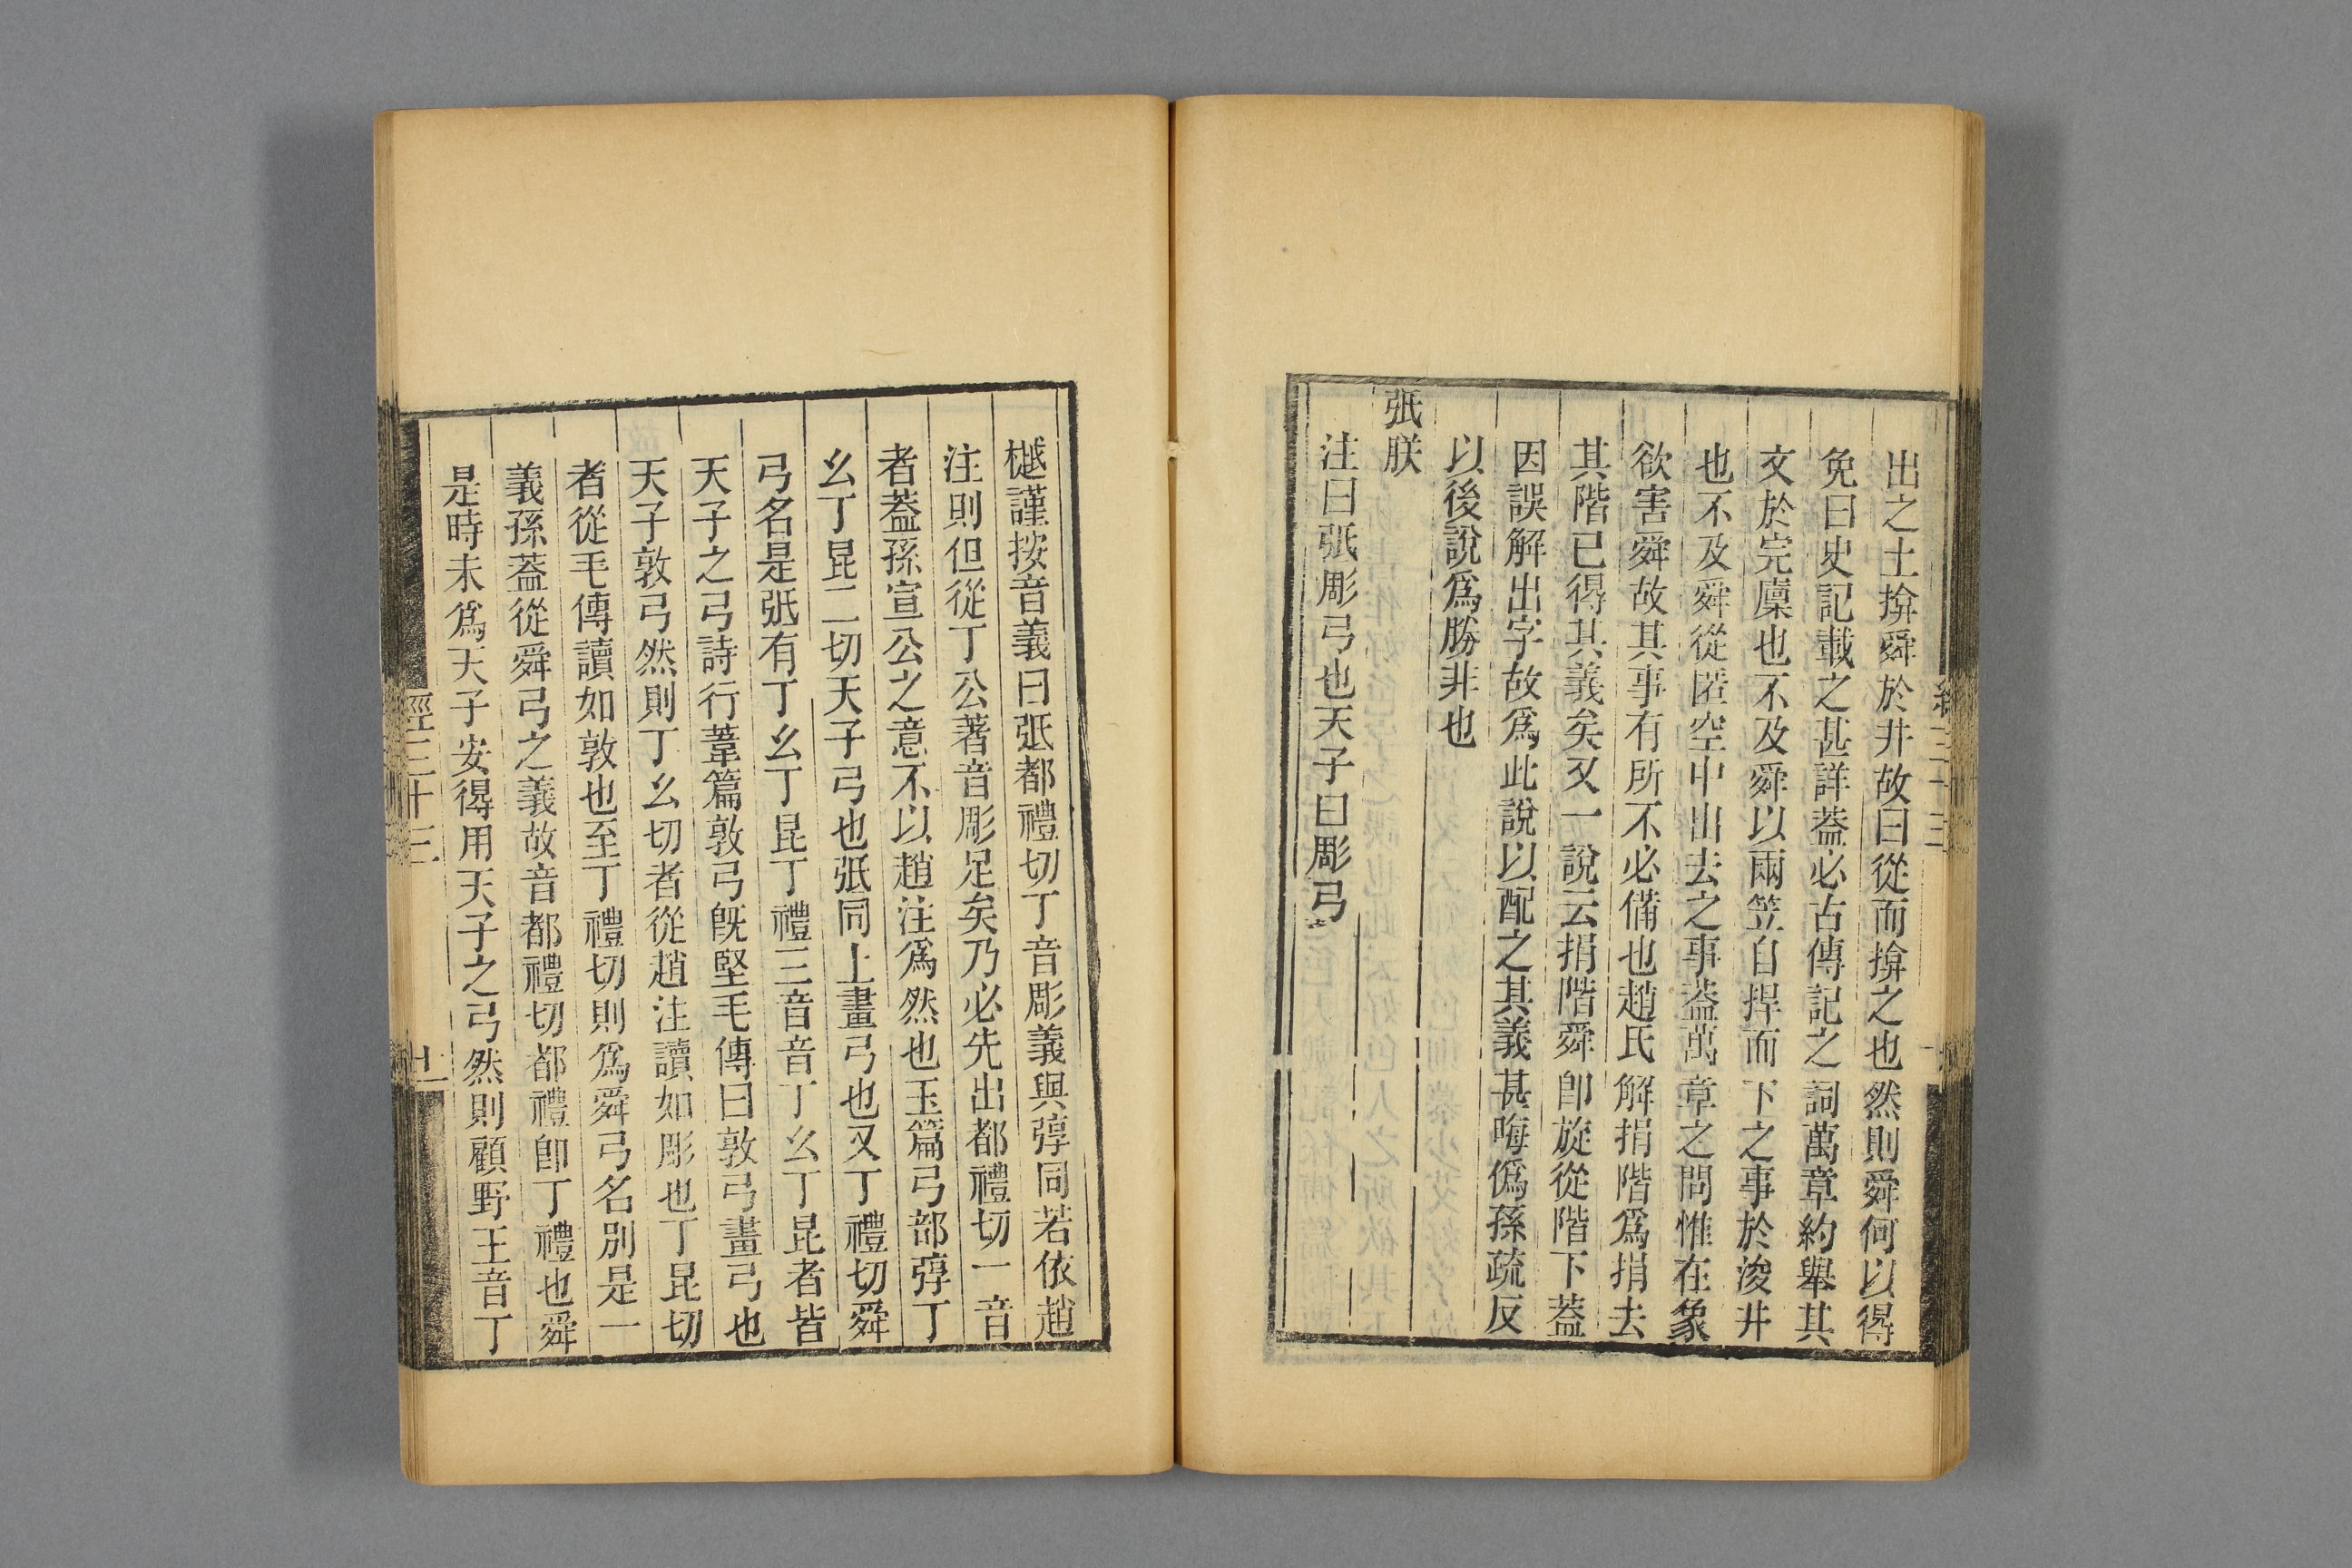 出之土揜舜於井故曰從而揜之也然則舜何以得
免曰史記載之甚詳葢必古傳記之詞萬章約舉其
文於完廩也不及舜以兩笠自捍而下之事於浚井
也不及舜從匿空中出去之事葢萬章之問惟在象
欲害舜故其事有所不必備也趙氏解捐階爲捐去
其階已得其義矣又一說云捐階舜卽旋從階下葢
因誤解出字故爲此說以配之其義甚晦僞孫疏反
以後說爲勝非也
弤朕
注曰弤彫弓也天子曰彫弓
樾謹按音義曰弤都禮切丁音彫義與弴同若依趙
注則但從丁公著音彫足矣乃必先出都禮切一音
者葢孫宣公之意不以趙注爲然也玉篇弓部弴丁
幺丁昆二切天子弓也弤同上畫弓也又丁禮切舜
弓名是弤有丁幺丁昆丁禮三音音丁幺丁昆者皆
天子之弓詩行葦篇敦弓旣堅毛傳曰敦弓畫弓也
天子敦弓然則丁幺切者從趙注讀如彫也丁昆切
者從毛傳讀如敦也至丁禮切則爲舜弓名別是一
義孫葢從舜弓之義故音都禮切都禮卽丁禮也舜
是時未爲天子安得用天子之弓然則顧野王音丁
經三十三